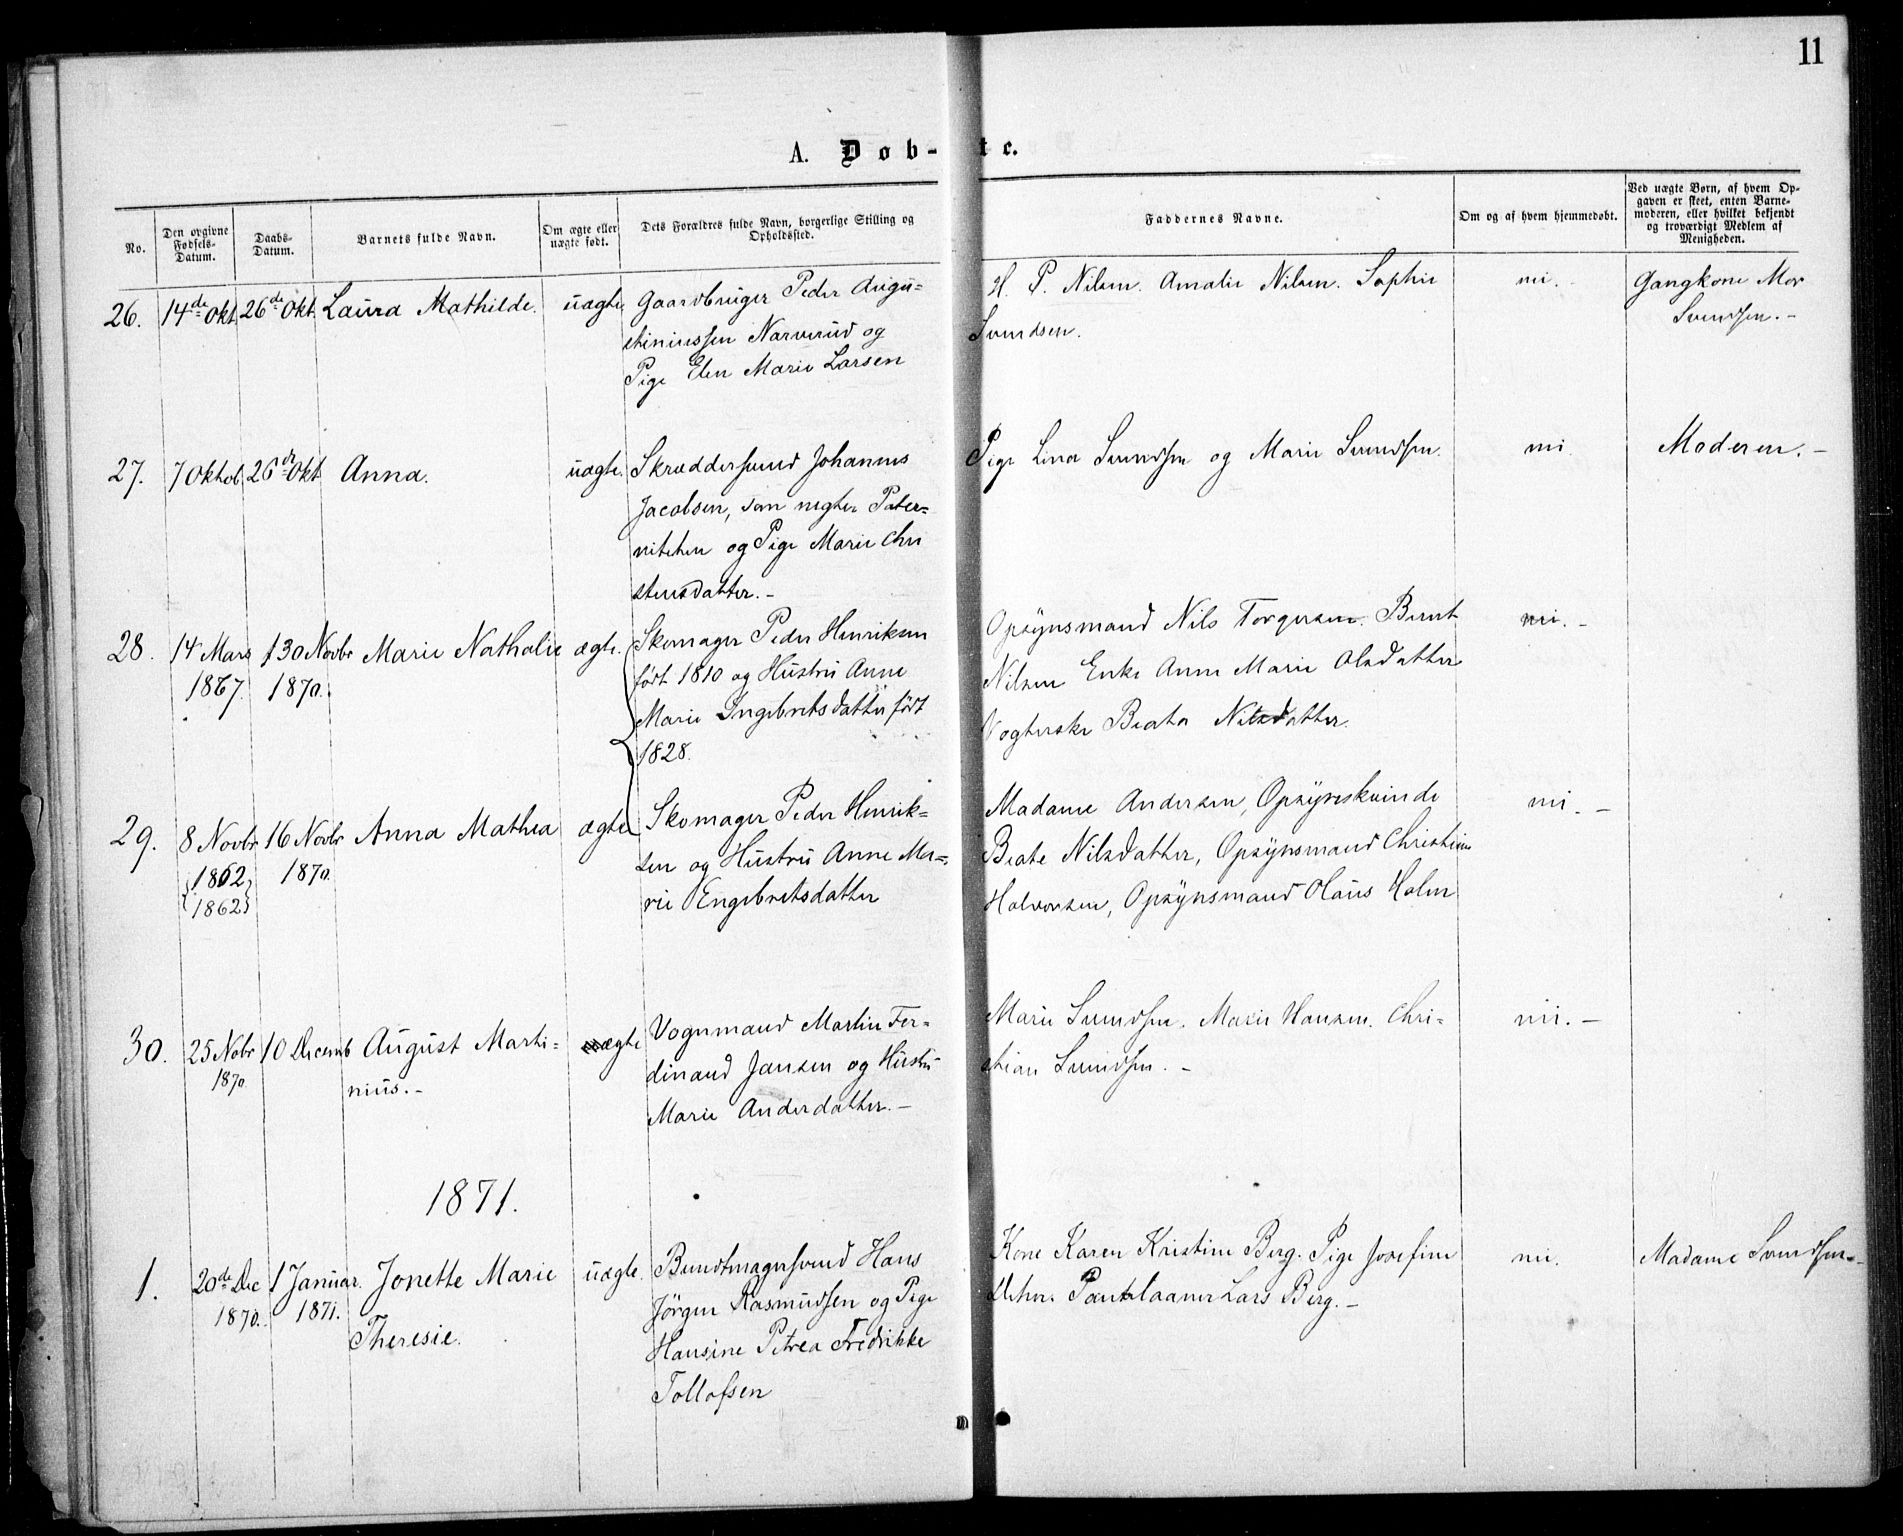 11
A. Døb-te.
No.
Den opgivne Fødsels-Datum.
Daabs-Datum.
Barnets fulde Navn.
Om ægte eller uægte født.
Dets Forældres fulde Navn, borgerlige Stilling og Opholdssted.
Faddernes Navne.
Om og af hvem hjemmedøbt.
Ved uægte Børn, af hvem Op-
gaven er skeet, enten Barne-
moderen, eller hvilket bekjendt
og troværdigt Medlem af
Menigheden.
26. 14de Okt 26de Okt. Laura Mathilde. uægte Gaardbruger Peder Augu-
stiniussen Narverud og
Pige Elen Marie Larsen
H. P. Nilsen. Amalie Nilsen. Sophie
Svendsen.
nei.
Gangkone Mor
Svendsen. -
27. 7 Oktob. 26de Okt Anna. uægte. Skræddersvend Johannes
Jacobsen, som negter Pater-
niteten og Pige Marie Chri
stensdatter. -
Pige Lina Svendsen og Marie Svendsen.
nei
Moderen. -
28. 14 Mars 30 Novbr Marie Nathalie ægte. Skomager Peder Henriksen
1867. 1870. født 1810 og Hustru Anne
Marie Ingebretsdatter født
1828.
Opsynsmand Nils Torgersen. Bernt
Nilsen Enke Anne Marie Olsdatter
Vogterske Beata Nilsdatter.
nei. -
29. 8 Novbr 16 Novbr Anna Mathea ægte Skomager Peder Henrik-
1862 1870. sen og Hustru Anne Ma-
{1862} rie Engebretsdatter
Madame Andersen, Opsyneskvinde
Beate Nilsdatter, Opsynsmand Christian
Halvorsen, Opsynsmand Olaus Holm
nei. -
30. 25 Nobr 10 Decemb August Marti- ægte Vognmand Martin Fer-
1870 nius. - dinand Jansen og Hustru
Marie Anderdatter. -
Marie Svendsen. Marie Hansen. Chri-
stian Svendsen. -
nei. -
1871.
1. 20de Dec 1 Januar. Jonette Marie uægte. Bundtmagersvend Hans
1870. 1871. Jörgen Rasmussen og Pige
Theresie. Hansine Petrea Fredrikke
Tollofsen
Kone Karen Kristine Berg. Pige Josefine
Pantelaaner Lars Berg. -
nei.
Madame Svendsen. -